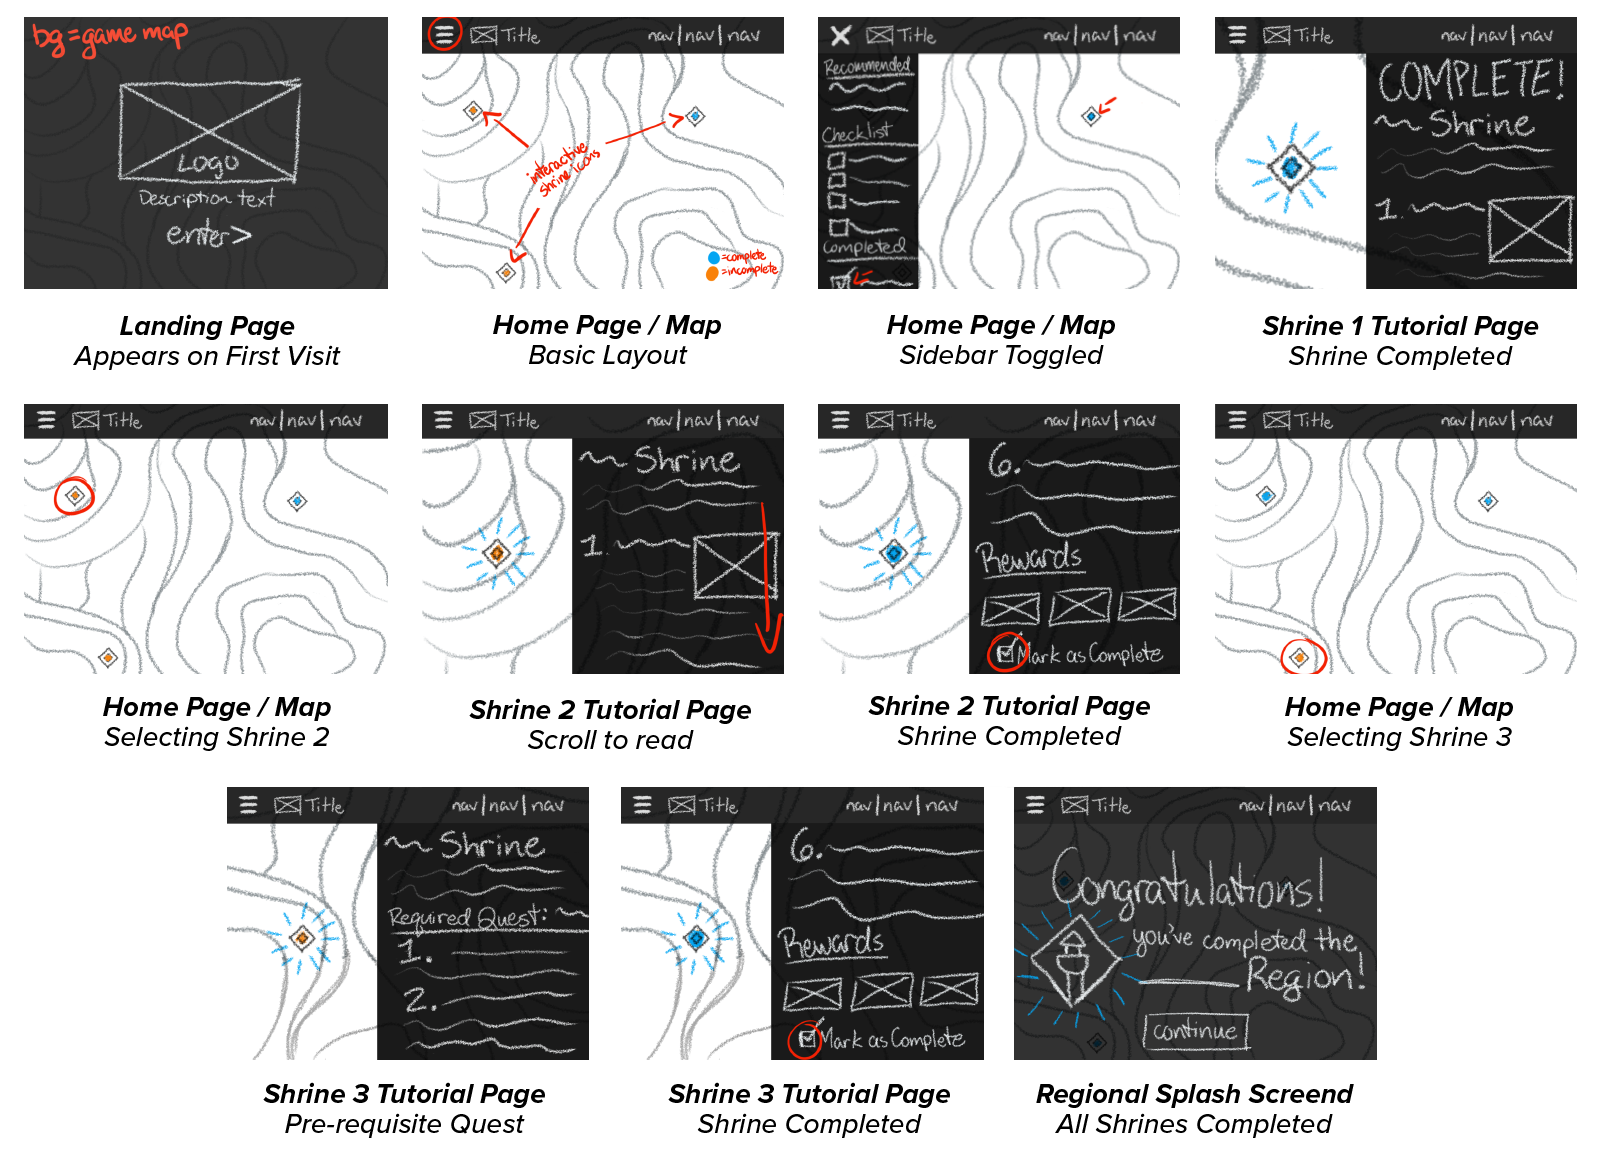 bg=game map
Logo
Description text
enter>
Landing Page
Appears on First Visit
Title nav|nav|nav
interactive
shrine icons
=complete
=incomplete
Home Page / Map
Basic Layout
Title nav|nav|nav
Recommended
Checklist
Completed
Home Page / Map
Sidebar Toggled
Title nav|nav|nav
COMPLETE!
Shrine
1.
Shrine 1 Tutorial Page
Shrine Completed
Title nav|nav|nav
Home Page / Map
Selecting Shrine 2
Title nav|nav|nav
Shrine
1.
Shrine 2 Tutorial Page
Scroll to read
Title nav|nav|nav
6.
Rewards
Mark as Complete
Shrine 2 Tutorial Page
Shrine Completed
Title nav|nav|nav
Home Page / Map
Selecting Shrine 3
Title nav|nav|nav
Shrine
Required Quest:
1.
2.
Shrine 3 Tutorial Page
Pre-requisite Quest
Title nav|nav|nav
6.
Rewards
Mark as Complete
Shrine 3 Tutorial Page
Shrine Completed
Title nav|nav|nav
Congratulations!
you've completed the
Region!
continue
Regional Splash Screend
All Shrines Completed